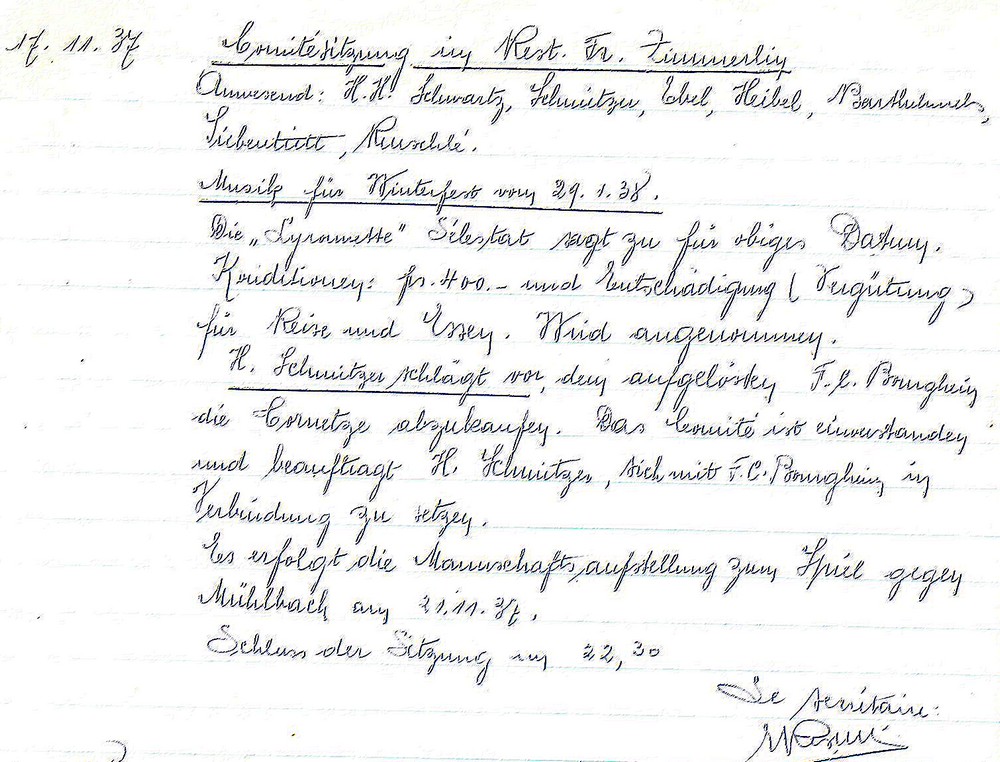 17.11.37 Comitésitzung im Rest. Fr. Zimmerlin
Anwesend: H.H. Schwartz, Schmitzer, Ebel, Heibel, Barthelmebs,
Siebentritt, Ruschlé.
Musik für Winterfest vom 29.1.38.
Die „Lyromette" Sélestat sagt zu für obiges Datum.
Konditionen: fr. 400.- und Entschädigung (Vergütung)
für Reise und Essen. Wird angenommen.
H. Schmitzer schlägt vor, dem aufgelösten F.C. Bourgheim
die Cornetze abzukaufen. Das Comité ist einverstanden
und beauftragt H. Schmitzer, sich mit F.C. Bourgheim in
Verbindung zu setzen.
Es erfolgt die Mannschaftsaufstellung zum Spiel gegen
Mühlbach am 21.11.37.
Schluss der Sitzung um 22,30
Le secrétaire: